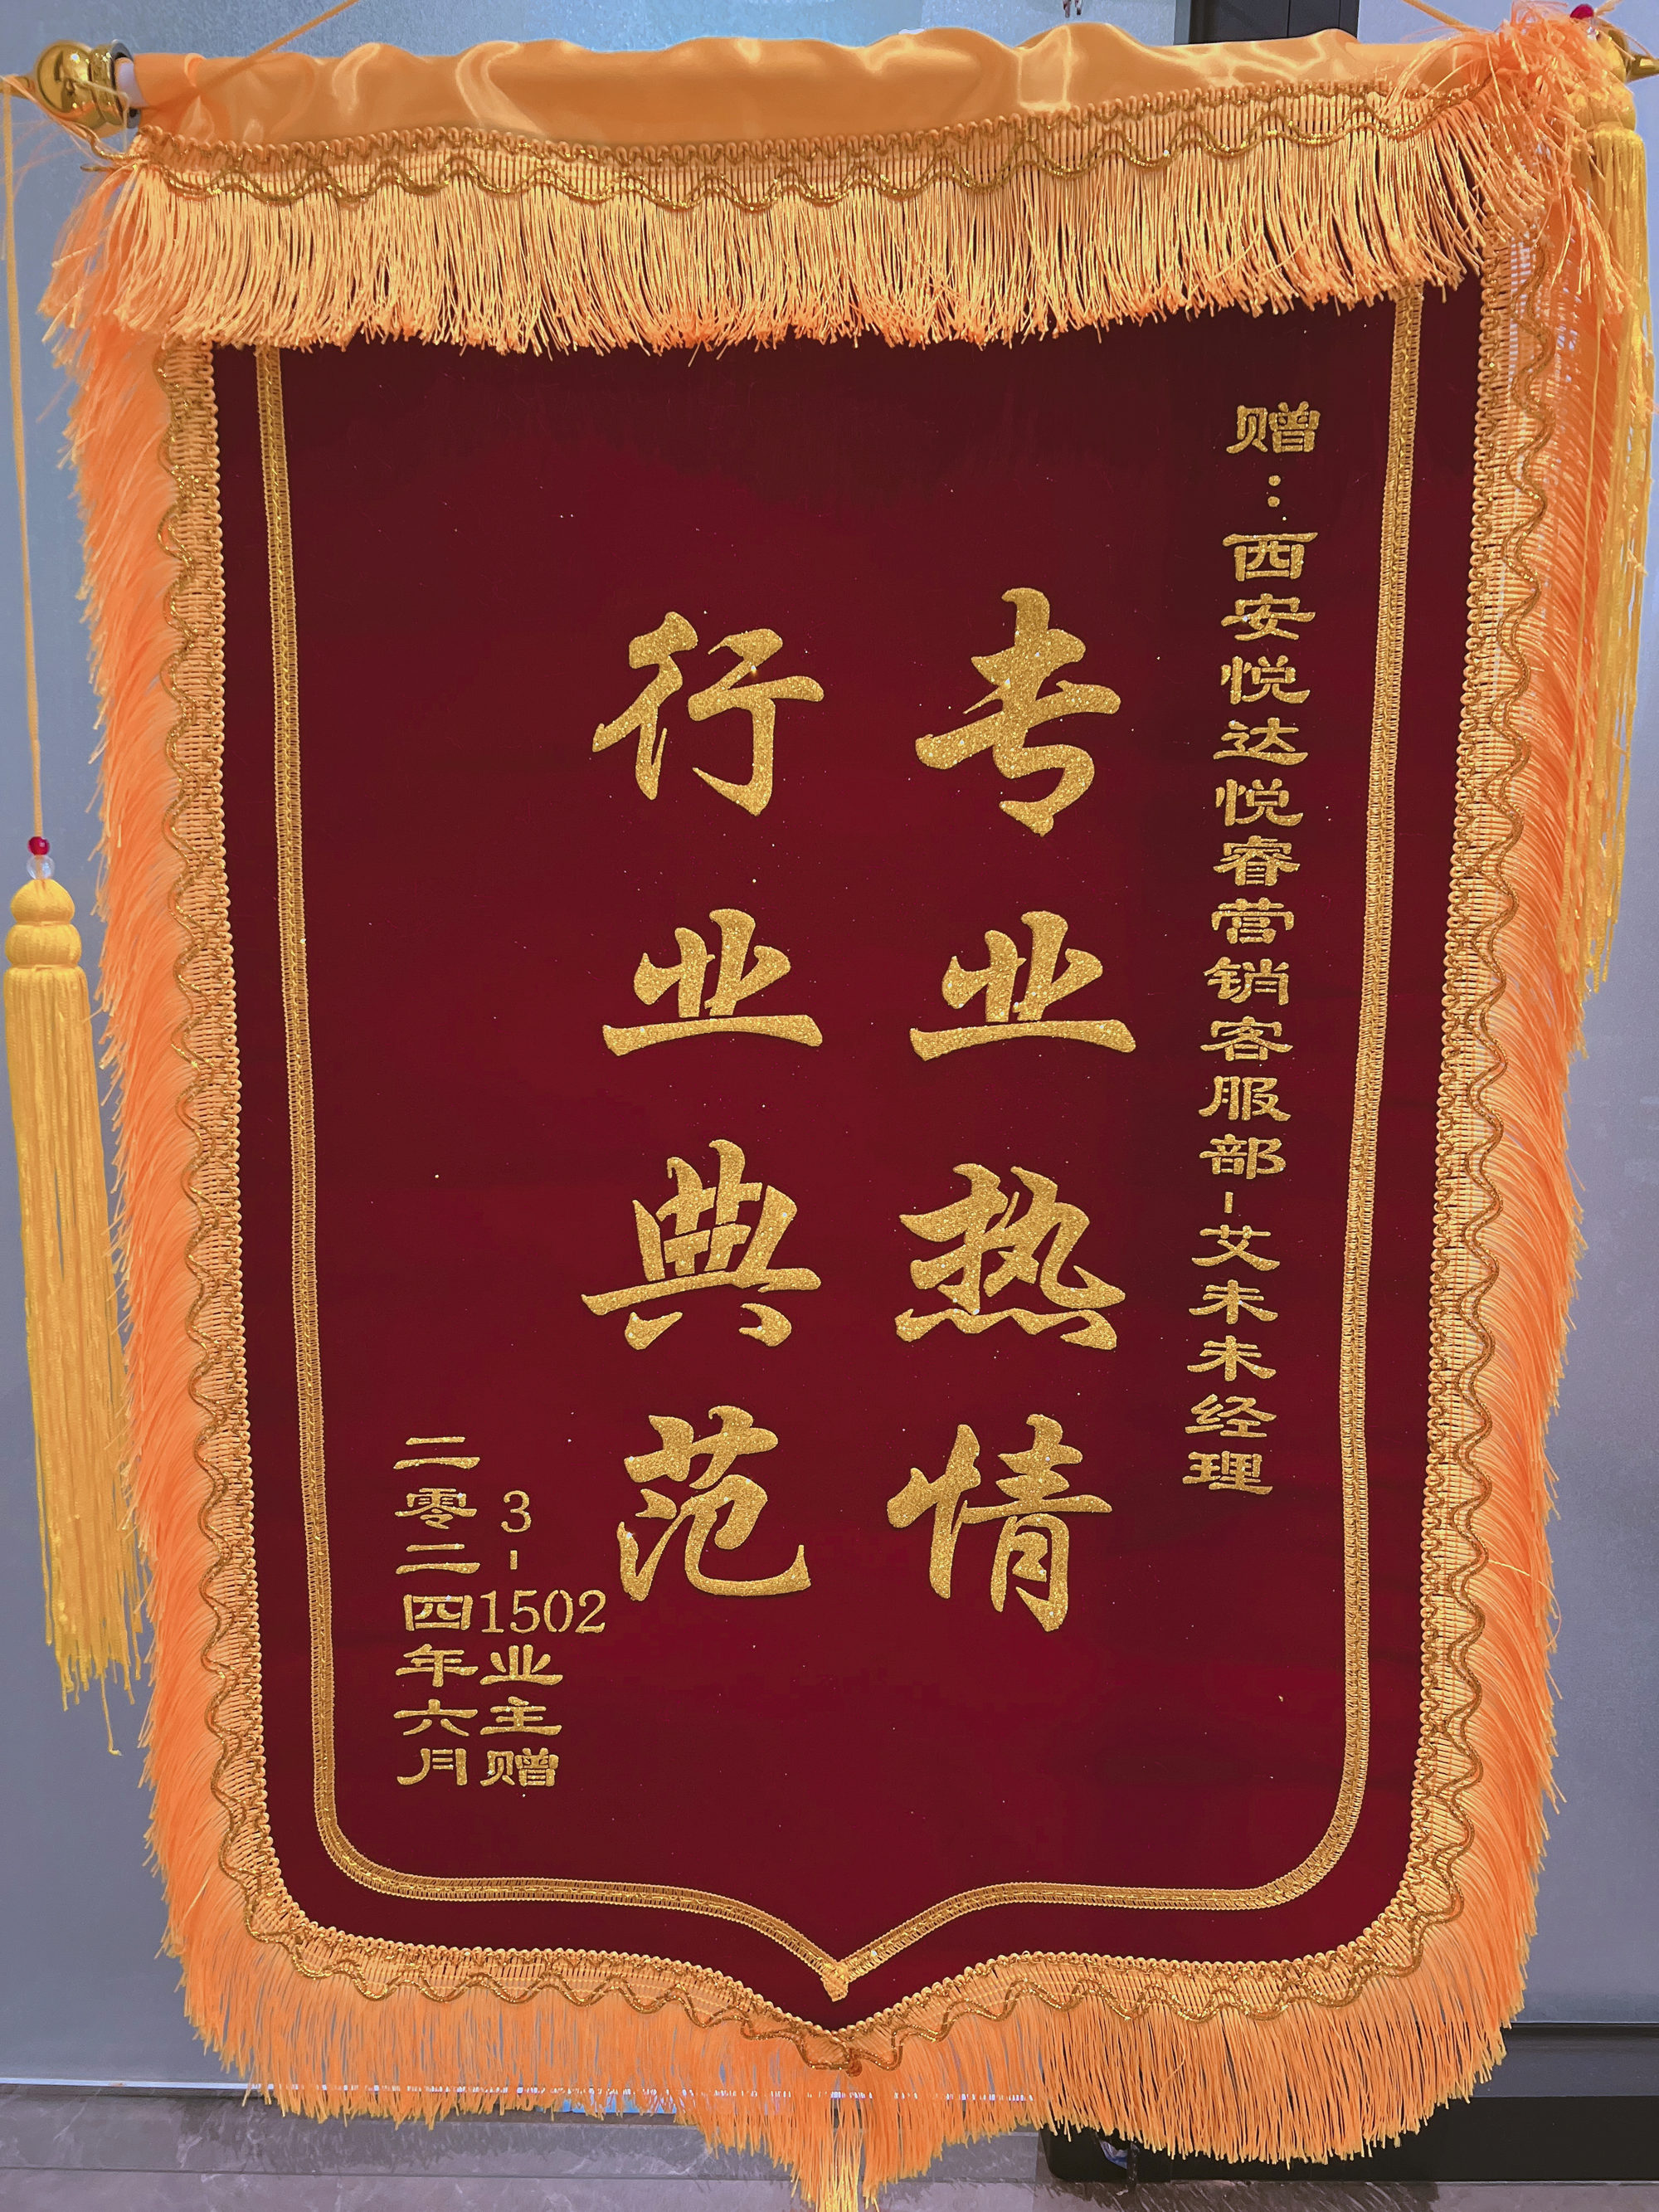 赠：西安悦达悦睿营销客服部-艾未未经理
专业热情
行业典范
3-1502业主赠
二零二四年六月